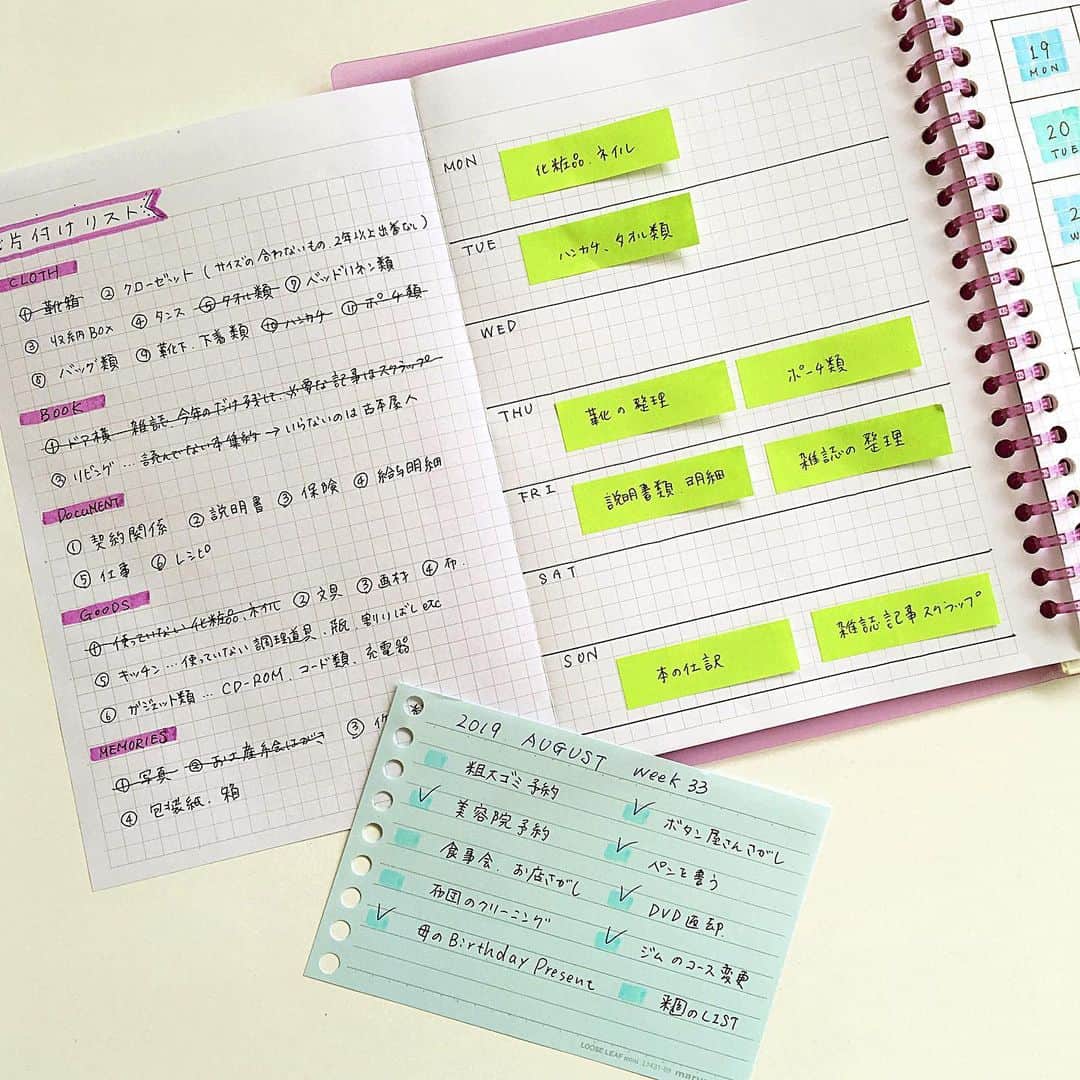 片付けリスト
CLOTH
① 靴箱 ② クローゼット (サイズの合わないもの、2年以上出番なし)
③ 収納BOX ④ タンス ⑤ タオル類 ⑦ ベッドリネン類
⑧ バッグ類 ⑨ 靴下、下着類 ⑩ ハンカチ ⑪ ポーチ類
BOOK
① ドア横 雑誌、今年のだけ残して、必要な記事はスクラップ
② リビング… 読んでいない本集約 → いらないのは古本屋へ
DOCUMENT
① 契約関係 ② 説明書 ③ 保険 ④ 給与明細
⑤ 仕事 ⑥ レシピ
GOODS
① 使っていない化粧品、ネイル ② 文具 ③ 画材 ④ 布
⑤ キッチン… 使っていない調理道具、瓶、割りばし etc
⑥ ガジェット類… CD-ROM、コード類、充電器
MEMORIES
① 写真 ② お土産、絵はがき ③
④ 包装紙、箱
MON 化粧品、ネイル
TUE ハンカチ、タオル類
WED
THU 靴の整理 ポーチ類
FRI 説明書類、明細 雑誌の整理
SAT
SON 本の仕訳 雑誌記事スクラップ
19
MON
20
TUE
2019 AUGUST week 33
粗大ゴミ予約
美容院予約
食事会、お店さがし
布団のクリーニング
母のBirthday Present
ボタン屋さんさがし
ペンを買う
DVD返却
ジムのコース変更
来週のLIST
LOOSE LEAF mini L1431-09 maru